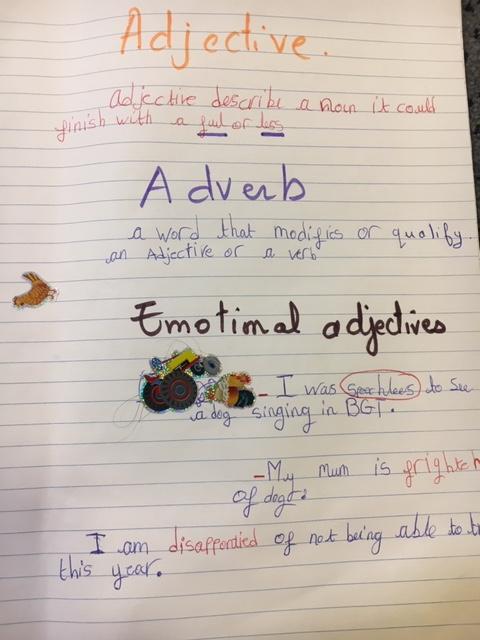 Adjective.
adjective describe a noun it could
finish with a ful or less
Adverb
a word that modifies or qualify.
an Adjective or a verb
Emotimal adjectives
- I was speachlees to see
a dog singing in BGT.
- My mum is frighteh
of dogs.
I am disappontied of not being able to
this year.